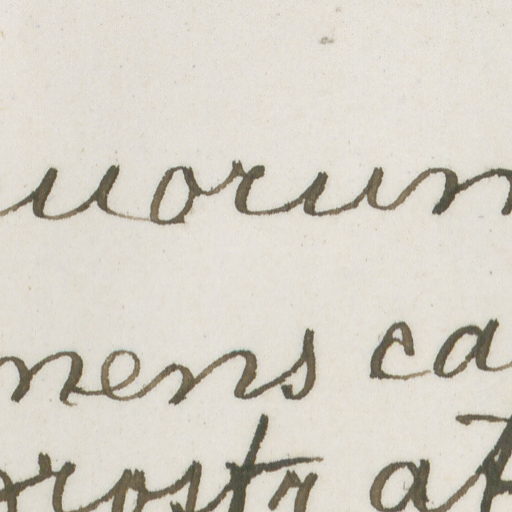 uorum
nens ca
prostr at